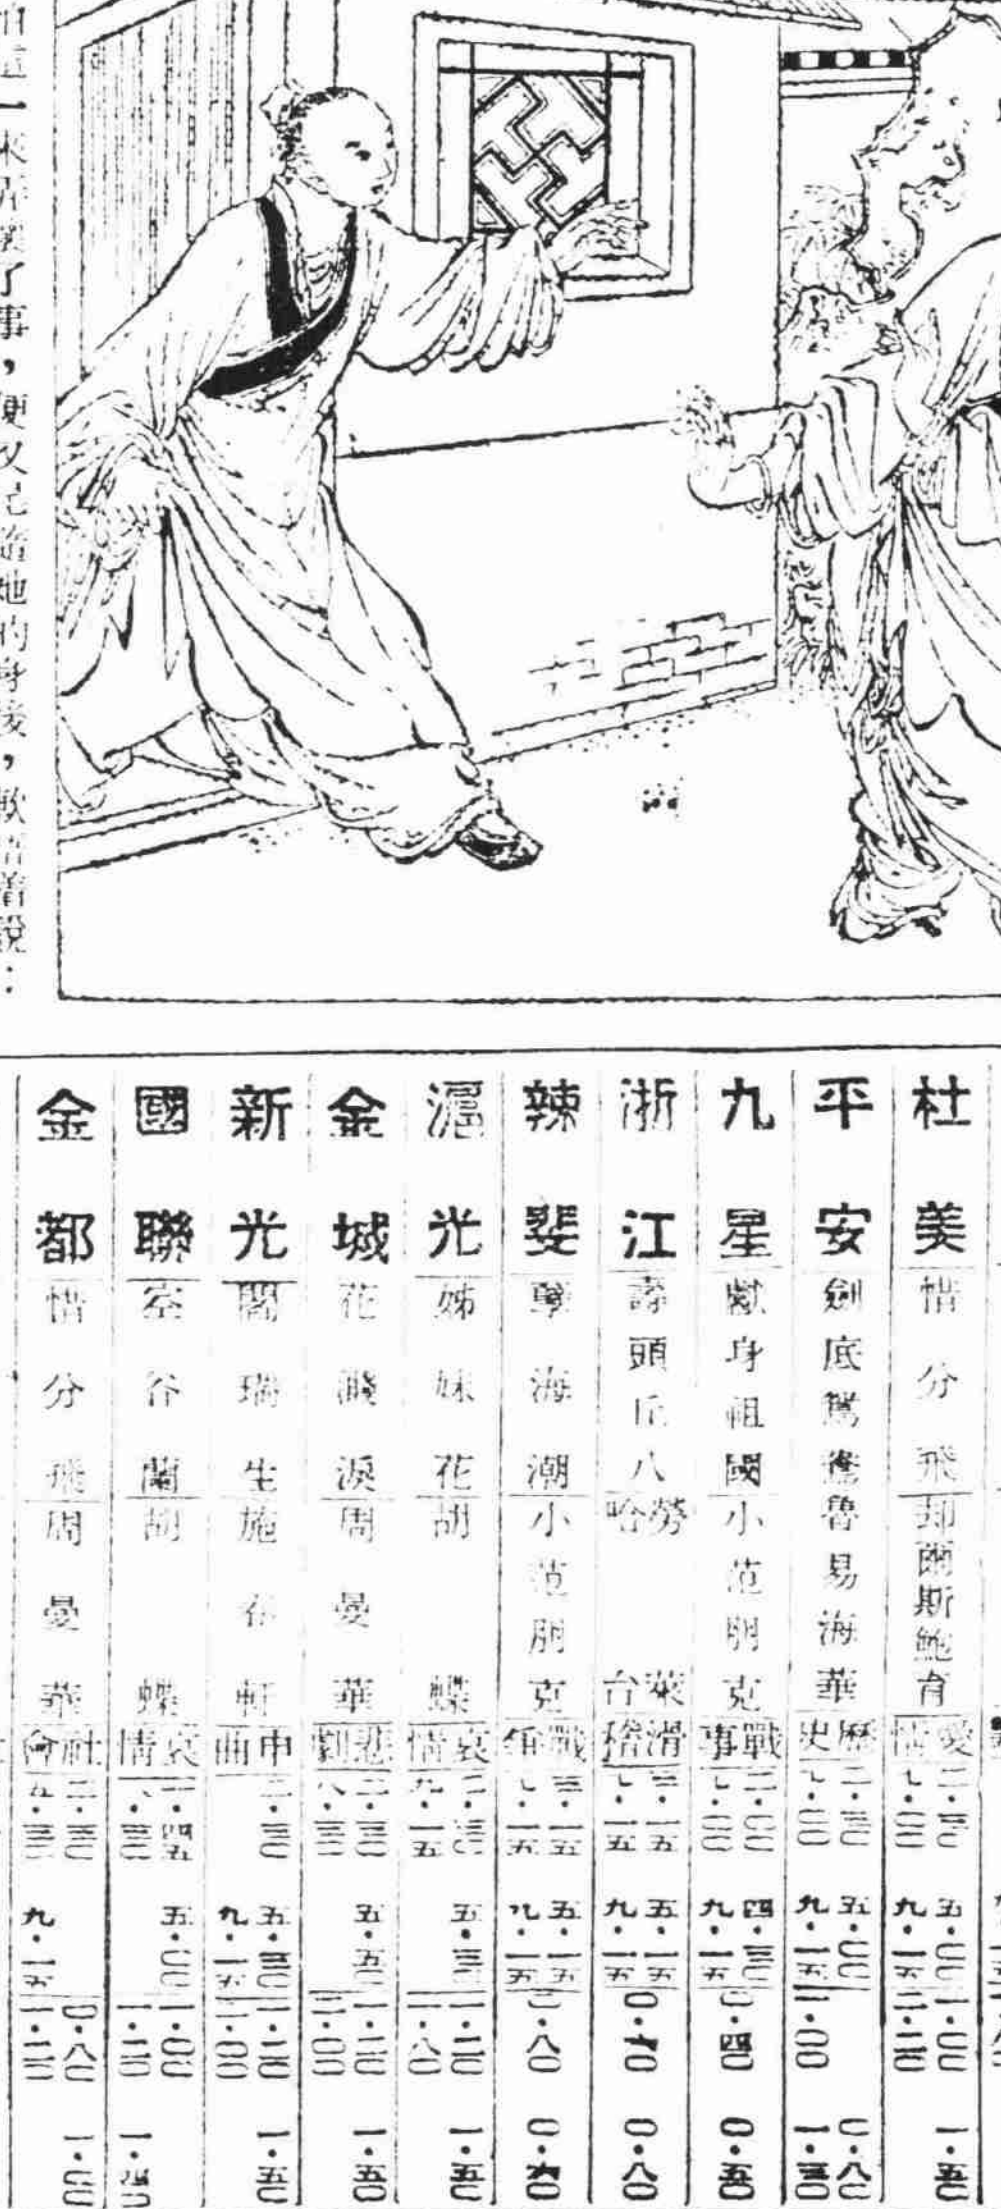 杜美 惜分飛 却爾斯鮑育 愛情 二·三〇 七·〇〇 五·〇〇 九·一五 一·〇〇 二·二〇 一·五〇
平安 劍底鴛鴦 魯易海華 歷史 二·三〇 七·〇〇 五·〇〇 九·一五 一·〇〇 〇·八〇 一·三〇
九星 獻身祖國 小范朋克 戰事 二·〇〇 七·〇〇 四·三〇 九·一五 〇·四〇 〇·五〇
浙江 壽頭丘八 勞萊哈台 滑稽 三·一五 七·一五 五·一五 九·一五 〇·六〇 〇·八〇
辣斐 孽海潮 小范朋克 戰爭 三·一五 七·一五 五·一五 九·一五 〇·八〇 〇·六〇
滬光 姊妹花 胡蝶 哀情 二·三〇 九·一五 五·三〇 一·二〇 一·八〇 一·五〇
金城 花濺淚 周曼華 悲劇 二·三〇 八·三〇 五·五〇 一·二〇 二·〇〇 一·五〇
新光 閻瑞生 施春軒 申曲 二·三〇 五·三〇 九·一五 一·二〇 二·〇〇 一·五〇
國聯 空谷蘭 胡蝶 哀情 二·四五 八·三〇 五·〇〇 一·〇〇 一·二〇 一·四〇
金都 惜分飛 周曼華 社會 二·三〇 五·三〇 九·一五 〇·八〇 一·二〇 一·〇〇
了事，便又 她的身後， 着說：